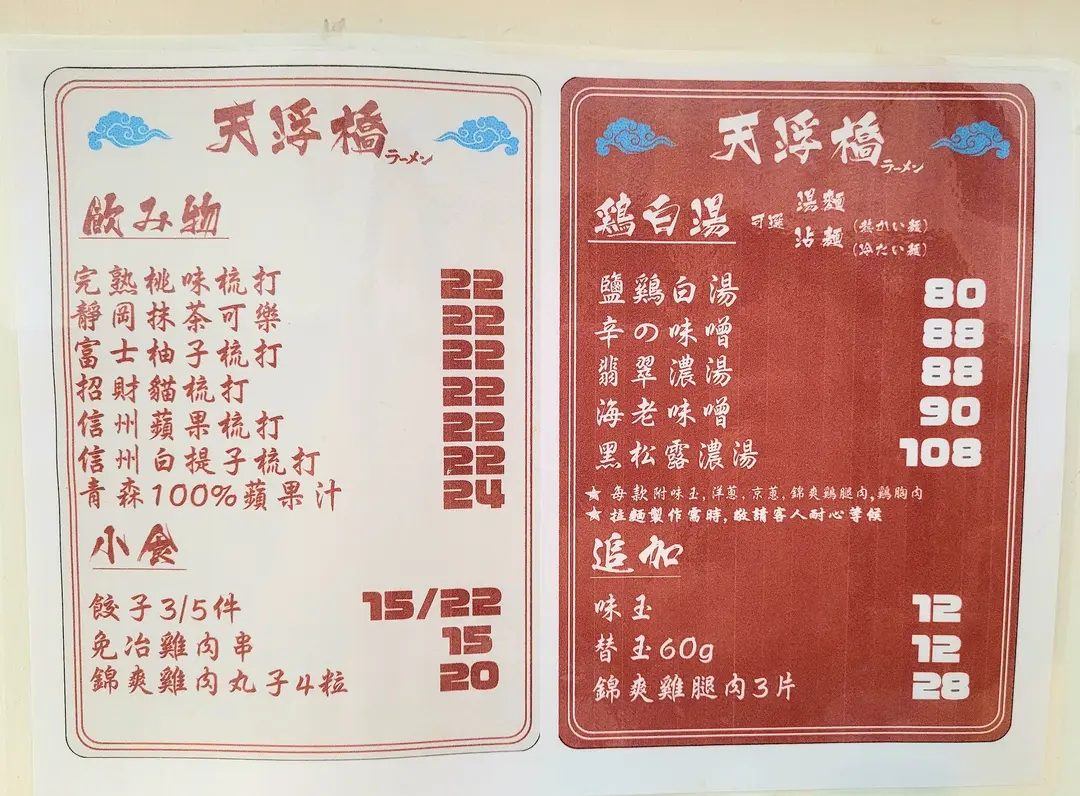 天浮橋
ラーメン
飲み物
完熟桃味梳打 22
靜岡抹茶可樂 22
富士柚子梳打 22
招財貓梳打 22
信州蘋果梳打 22
信州白提子梳打 22
青森100%蘋果汁 24
小食
餃子3/5件 15/22
免冶雞肉串 15
錦爽雞肉丸子4粒 20
天浮橋
ラーメン
鶏白湯 可選 湯麵 (熱かい麺)
沾麵 (冷たい麺)
鹽鶏白湯 80
辛の味噌 88
翡翠濃湯 88
海老味噌 90
黑松露濃湯 108
★ 每款附味玉,洋蔥,京蔥,錦爽鶏腿肉,鶏胸肉
★ 拉麵製作需時,敬請客人耐心等候
追加
味玉 12
替玉60g 12
錦爽雞腿肉3片 28